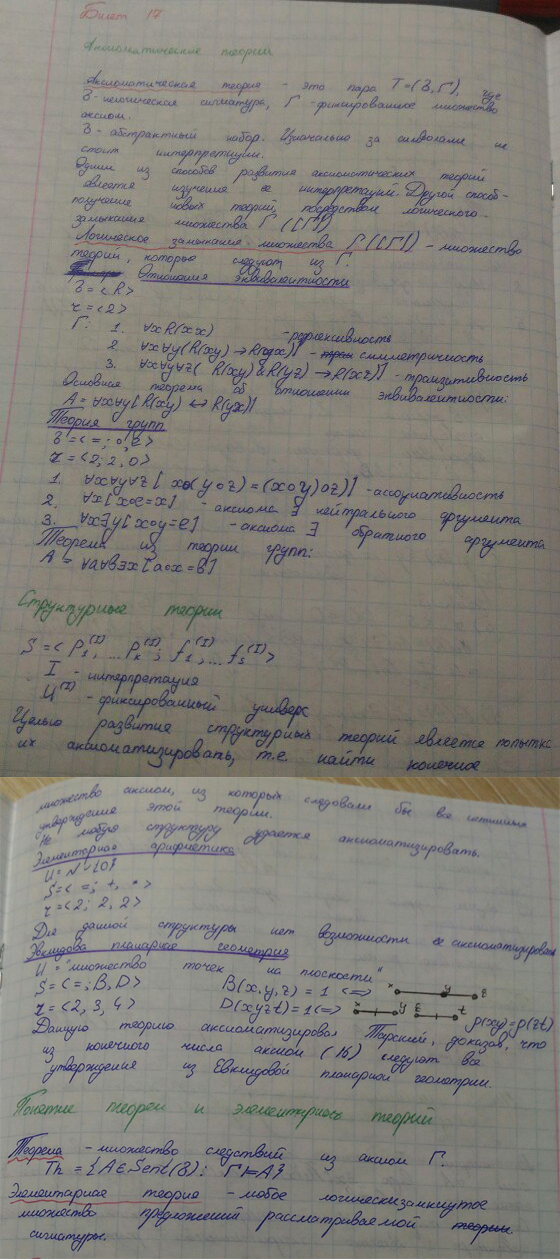 Билет 17
Аксиоматические теории.
Аксиоматическая теория - это пара T=(З,Г), где
З-нелогическая сигнатура, Г-фиксированное множество
аксиом.
З - абстрактный набор. Изначально за символами не
стоит интерпретации.
Одним из способов развития аксиоматических теорий
является изучения ее интерпретаций. Другой способ-
получение новых теорий, посредством логического
замыкания множества Г ([Г])
Логическое замыкание множества Г ([Г]) - множество
теорий, которые следуют из Г.
Отношения эквивалентности
З=<R>
τ=<2>
Г: 1. ∀xR(xx) -рефлексивность
2. ∀x∀y(R(xy)→R(yx)) - симметричность
3. ∀x∀y∀z(R(xy)&R(yz)→R(xz)) -транзитивность
Основная теорема об отношении эквивалентности:
A=∀x∀y[R(xy)↔R(yx)]
Теория групп
З=<=;∘,e>
τ=<2;2,0>
1. ∀x∀y∀z[x∘(y∘z)=(x∘y)∘z)] -ассоциативность
2. ∀x[x∘e=x] - аксиома ∃ нейтрального аргумента
3. ∀x∃y[x∘y=e] - аксиома ∃ обратного аргумента
Теорема из теории групп:
A=∀a∀b∃x[a∘x=b]
Структурные теории
S=<P₁^(I),...Pₖ^(I); f₁^(I),...fₛ^(I)>
I - интерпретация
U^(I) - фиксированный универс
Целью развития структурных теорий является попытка
их аксиоматизировать, т.е найти конечное
множество аксиом, из которых следовали бы все истинные
утверждения этой теории.
Не любую структуру удается аксиоматизировать.
Элементарная арифметика
U=N∪{0}
S=<=;+,*>
τ=<2;2,2>
Для данной структуры нет возможности ее аксиоматизировать
Эвклидова планарная геометрия
U="множество точек на плоскости"
S=<=;B,D> B(x,y,z)=1 <=> x y z
τ=<2,3,4> D(xyzt)=1<=> x y z t ρ(xy)=ρ(zt)
Данную теорию аксиоматизировал Тарский, доказав, что
из конечного числа аксиом (16) следуют все
утверждения из Евклидовой планарной геометрии.
Понятие теорем и элементарных теорий
Теорема - множество следствий из аксиом Г.
Th={A∈Sent(З): Г⊨A}
Элементарная теория - любое логическизамкнутое
множество предложений рассматриваемой теории
сигнатуры.